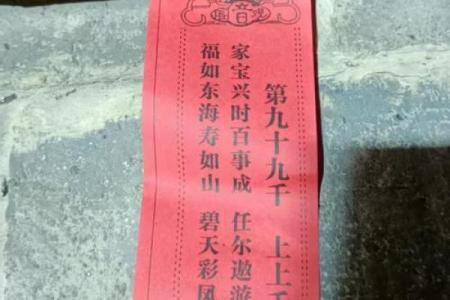 音
第九十九千 上上千
家宝兴时百事成 任尔遨游
福如东海寿如山 碧天彩凤